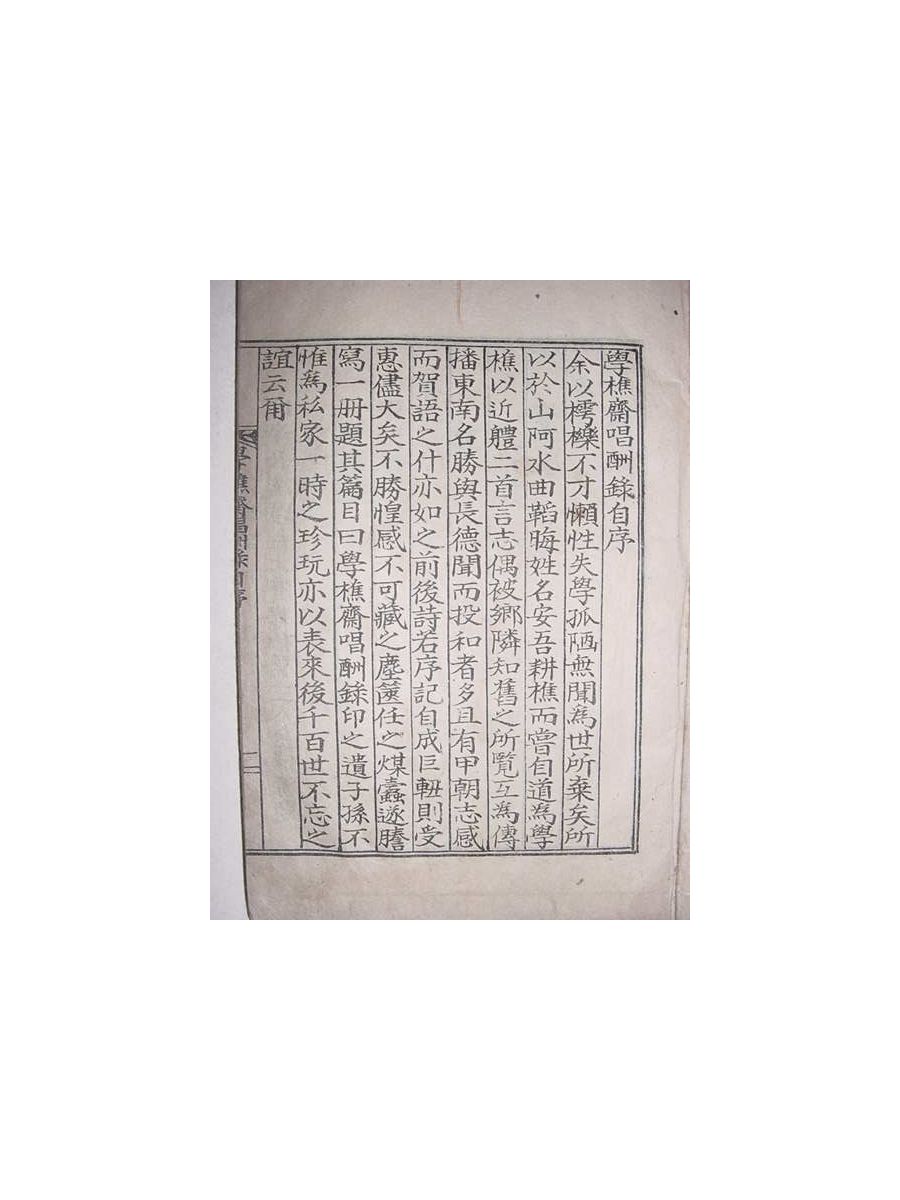 學樵齋唱酬錄自序
余以樗櫟不才懶性失學孤陋無聞爲世所棄矣所
以於山阿水曲韜晦姓名安吾耕樵而嘗自道爲學
樵以近軆二首言志偶被鄉隣知舊之所覽互爲傳
播東南名勝與長德聞而投和者多且有甲朝志感
而賀語之什亦如之前後詩若序記自成巨軸則受
惠儘大矣不勝惶感不可藏之塵篋任之煤蠹遂謄
寫一册題其篇目曰學樵齋唱酬錄印之遺子孫不
惟爲私家一時之珍玩亦以表來後千百世不忘之
誼云爾
學樵齋唱酬錄自序
二